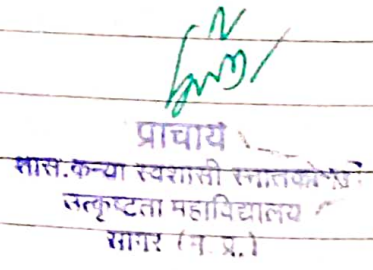 प्राचार्य
शास.कन्या स्वशासी स्नातकोत्तर
उत्कृष्टता महाविद्यालय
सागर (म.प्र.)